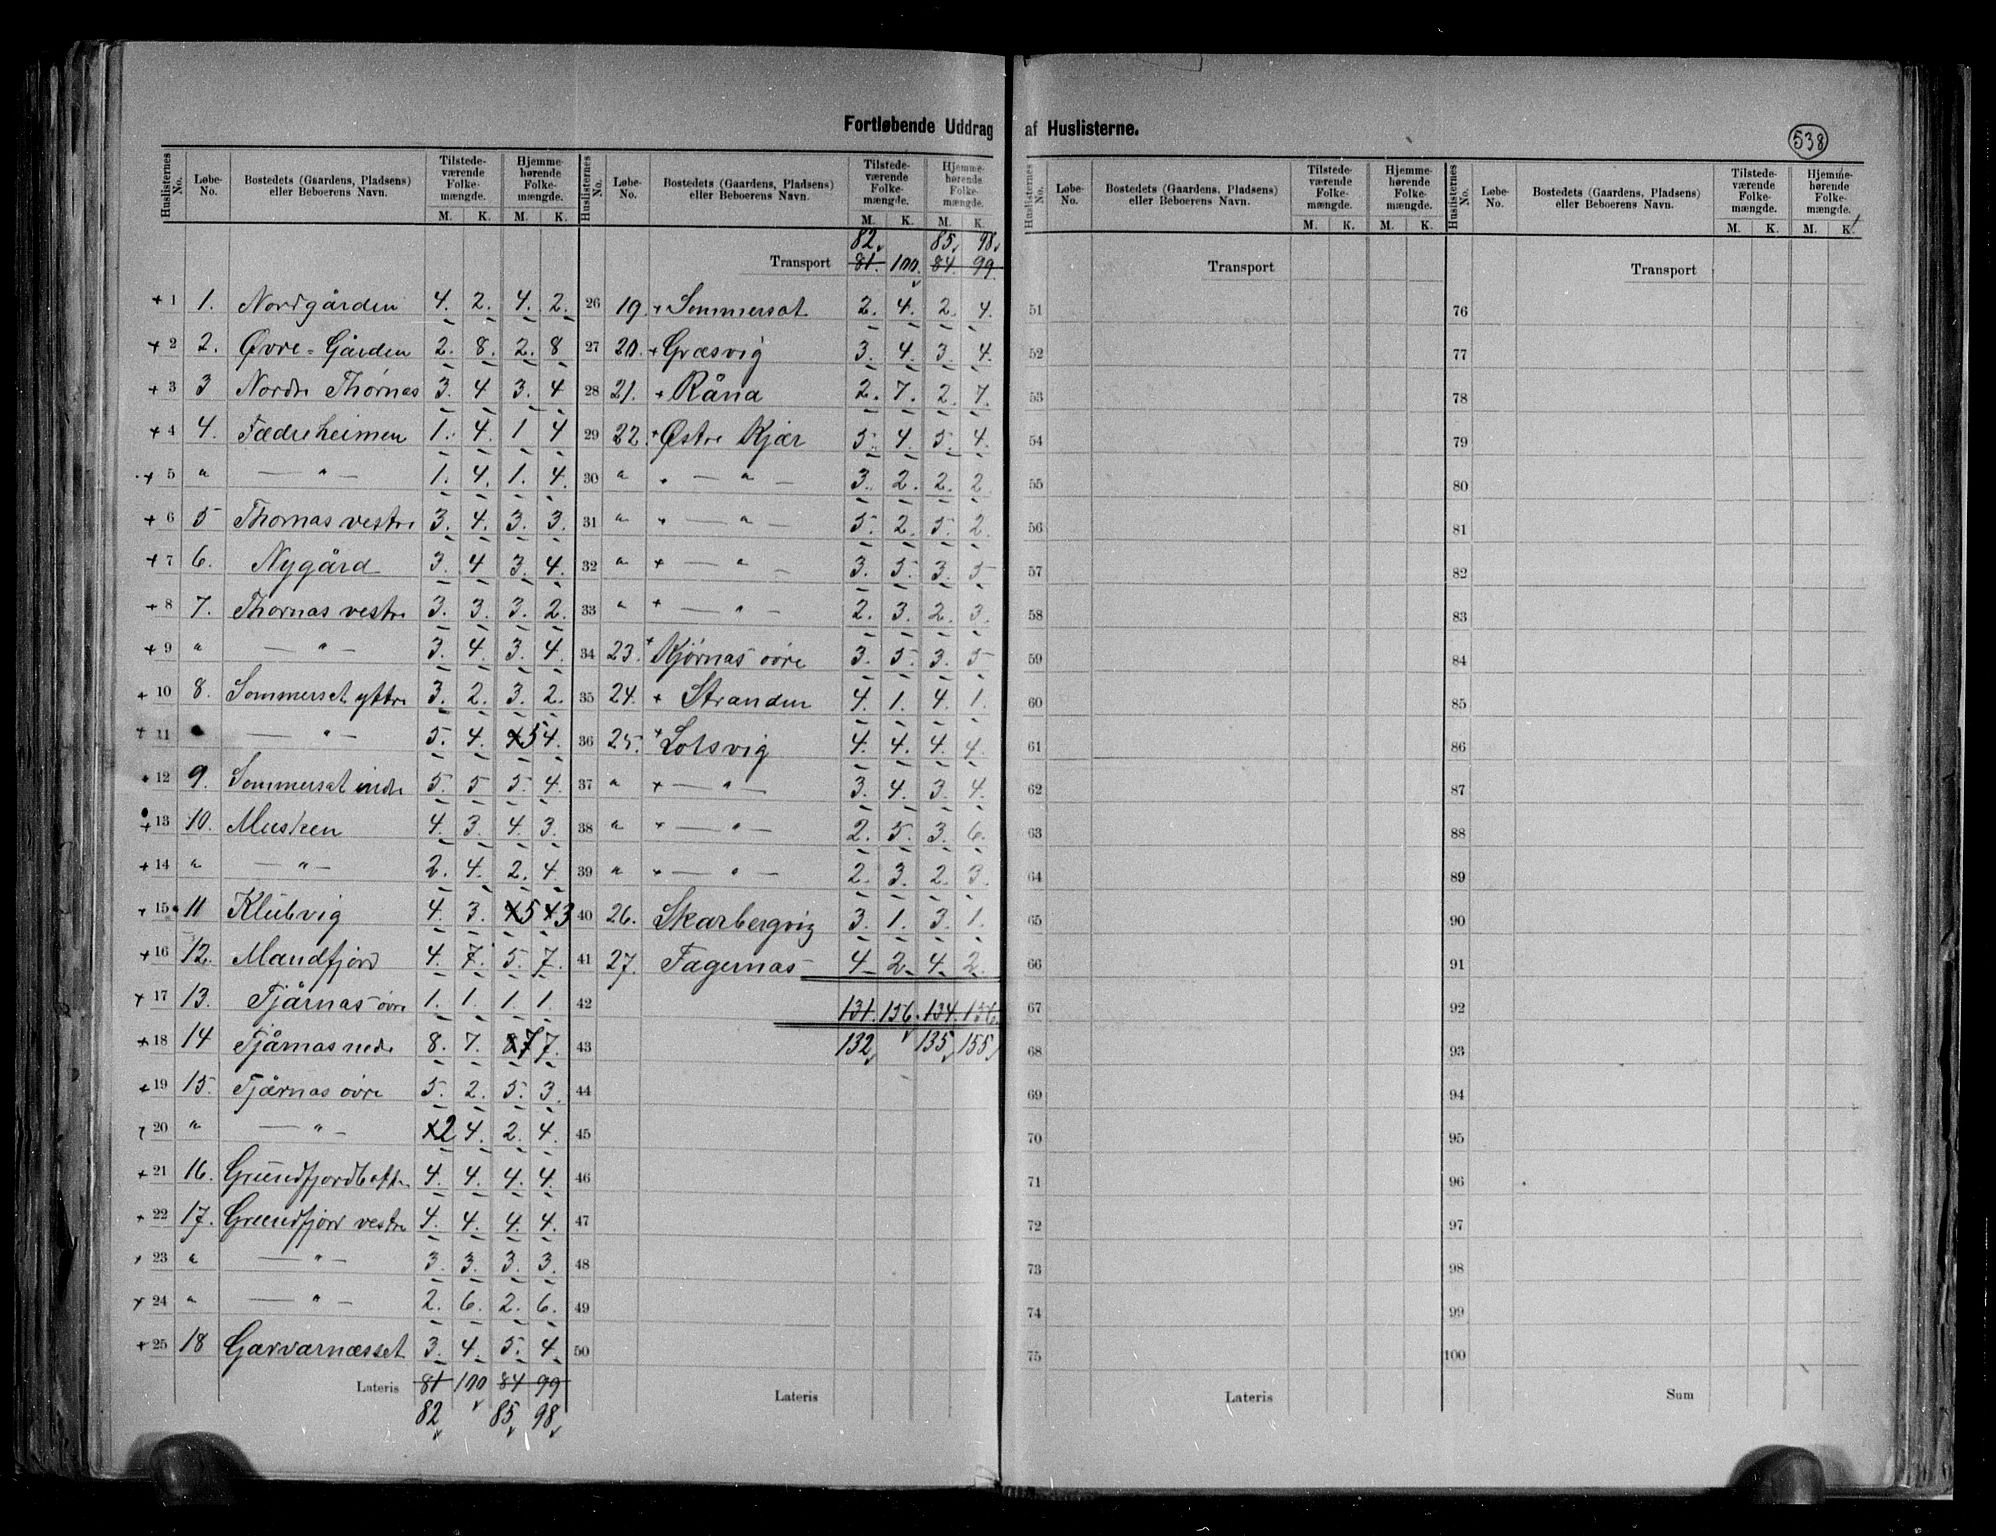 Fortløbende Uddrag af Huslisterne.
538
Huslisternes No. Løbe-No. Bostedets (Gaardens, Pladsens) eller Beboerens Navn. Tilstedeværende Folkemængde. M. K. Hjemmehørende Folkemængde. M. K.
1 1. Nordgården 4. 2. 4. 2.
2 2. Øvre-Gården 2. 8. 2. 8
3 3 Nordre Thornas 3. 4 3. 4
4 4. Fædreheimen 1. 4. 1 4
5 " — " — 1. 4. 1. 4.
6 5 Thornas vestre 3. 4. 3. 3.
7 6. Nygård 3. 4 3. 4.
8 7. Thornas vestre 3. 3. 3. 2.
9 " — " — 3. 4. 3. 4.
10 8. Sommerset yttre 3. 2. 3. 2.
11 " — " — 5. 4. 5 4.
12 9. Sommerset indre 5. 5 5. 4.
13 10. Musken 4. 3. 4. 3.
14 " — " — 2. 4. 2. 4.
15 11 Klubvig 4. 3. 4 5 4 3
16 12. Mandfjord 4. 7. 5. 7.
17 13. Tjårnas øvre 1. 1. 1. 1.
18 14 Tjårnas nedre 8. 7. 8 7 7.
19 15. Tjårnas øvre 5. 2. 5. 3.
20 " — " — 2 4. 2. 4.
21 16. Grundfjordbotten 4. 4. 4. 4.
22 17. Grundfjord vestre 4. 4. 4. 4.
23 " — " — 3. 3. 3. 3.
24 " — " — 2. 6. 2. 6.
25 18 Garvarnæsset 3. 4. 5. 4.
Lateris 81 100 84 99
82 85 98
Huslisternes No. Løbe-No. Bostedets (Gaardens, Pladsens) eller Beboerens Navn. Tilstedeværende Folkemængde. M. K. Hjemmehørende Folkemængde. M. K.
82 85 98
Transport 81. 100. 84. 99.
26 19. + Sommersat 2. 4. 2. 4.
27 20. + Græsvig 3. 4. 3. 4.
28 21. + Rånd 2. 7. 2. 7.
29 22. + Østre Kjær 5. 4. 5. 4.
30 " — " — 3. 2. 2. 2
31 " — " — 5. 2. 5. 2.
32 " + — " — 3. 5. 3. 5
33 " + — " — 2. 3. 2. 3.
34 23. + Kjørnas øvre 3. 5. 3. 5
35 24. + Stranden 4. 1. 4. 1.
36 25. + Lotsvig 4. 4. 4. 4.
37 " + — " — 3. 4. 3. 4.
38 " + — " — 2. 5. 3. 6.
39 " + — " — 2. 3. 2. 3.
40 26. Skarbergvig 3. 1. 3. 1.
41 27. Fagernas 4 2 4 2.
42 131. 156. 134. 156.
43 132 135 155
44
45
46
47
48
49
50
Lateris
Huslisternes No. Løbe-No. Bostedets (Gaardens, Pladsens) eller Beboerens Navn. Tilstedeværende Folkemængde. M. K. Hjemmehørende Folkemængde. M. K.
Transport
51
52
53
54
55
56
57
58
59
60
61
62
63
64
65
66
67
68
69
70
71
72
73
74
75
Lateris
Huslisternes No. Løbe-No. Bostedets (Gaardens, Pladsens) eller Beboerens Navn. Tilstedeværende Folkemængde. M. K. Hjemmehørende Folkemængde. M. K.
Transport
76
77
78
79
80
81
82
83
84
85
86
87
88
89
90
91
92
93
94
95
96
97
98
99
100
Sum